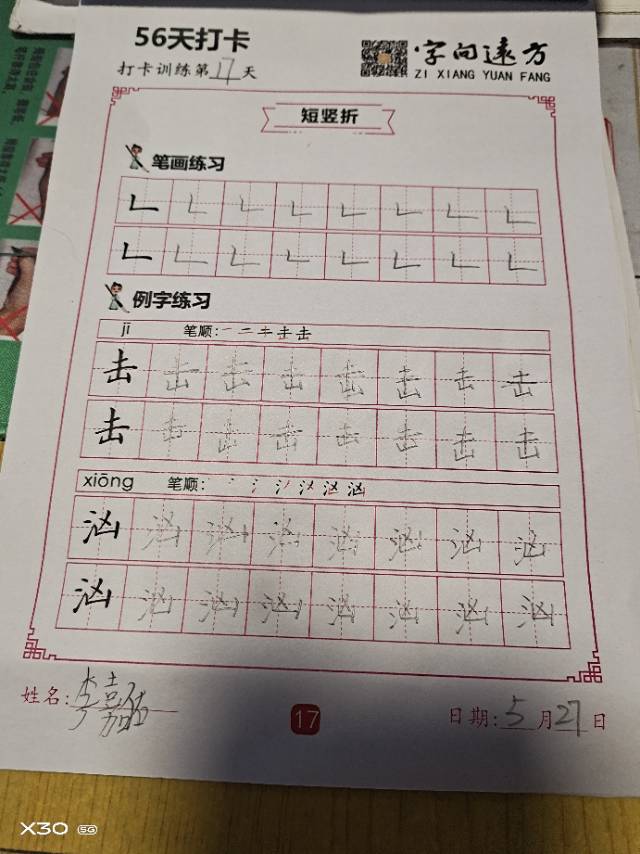 56天打卡
打卡训练第17天
字向远方
ZI XIANG YUAN FANG
短竖折
笔画练习
𠃊 𠃊 𠃊 𠃊 𠃊 𠃊 𠃊 𠃊
𠃊 𠃊 𠃊 𠃊 𠃊 𠃊 𠃊 𠃊
例字练习
jī 笔顺:
击 击 击 击 击 击 击 击
击 击 击 击 击 击 击 击
xiōng 笔顺:
汹 汹 汹 汹 汹 汹 汹 汹
汹 汹 汹 汹 汹 汹 汹 汹
姓名:李嘉
17
日期:5月27日
X30 5G